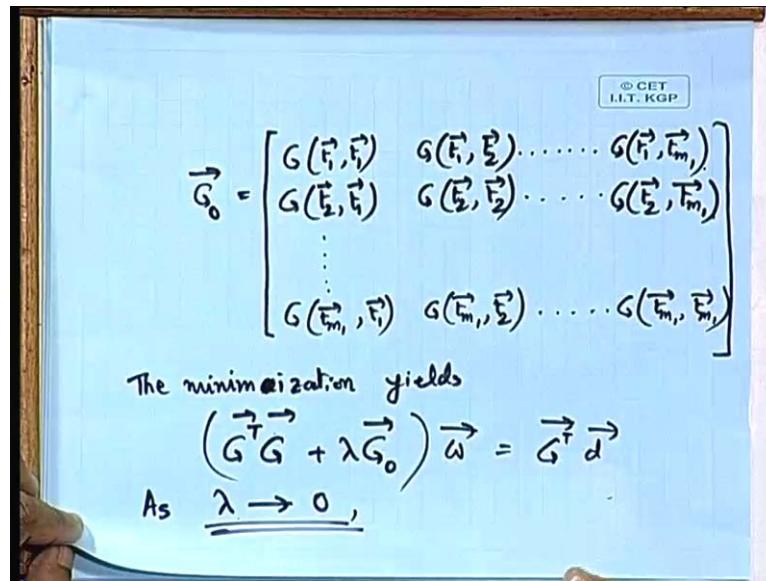 © CET
I.I.T. KGP
G⃗₀ = [ G(t⃗₁, t⃗₁) G(t⃗₁, t⃗₂) ....... G(t⃗₁, t⃗ₘ₁)
G(t⃗₂, t⃗₁) G(t⃗₂, t⃗₂) ..... G(t⃗₂, t⃗ₘ₁)
⋮
G(t⃗ₘ₁, t⃗₁) G(t⃗ₘ₁, t⃗₂) ..... G(t⃗ₘ₁, t⃗ₘ₁) ]
The minimization yields
(G⃗ᵀG⃗ + λG⃗₀) w⃗ = G⃗ᵀ d⃗
As λ → 0,